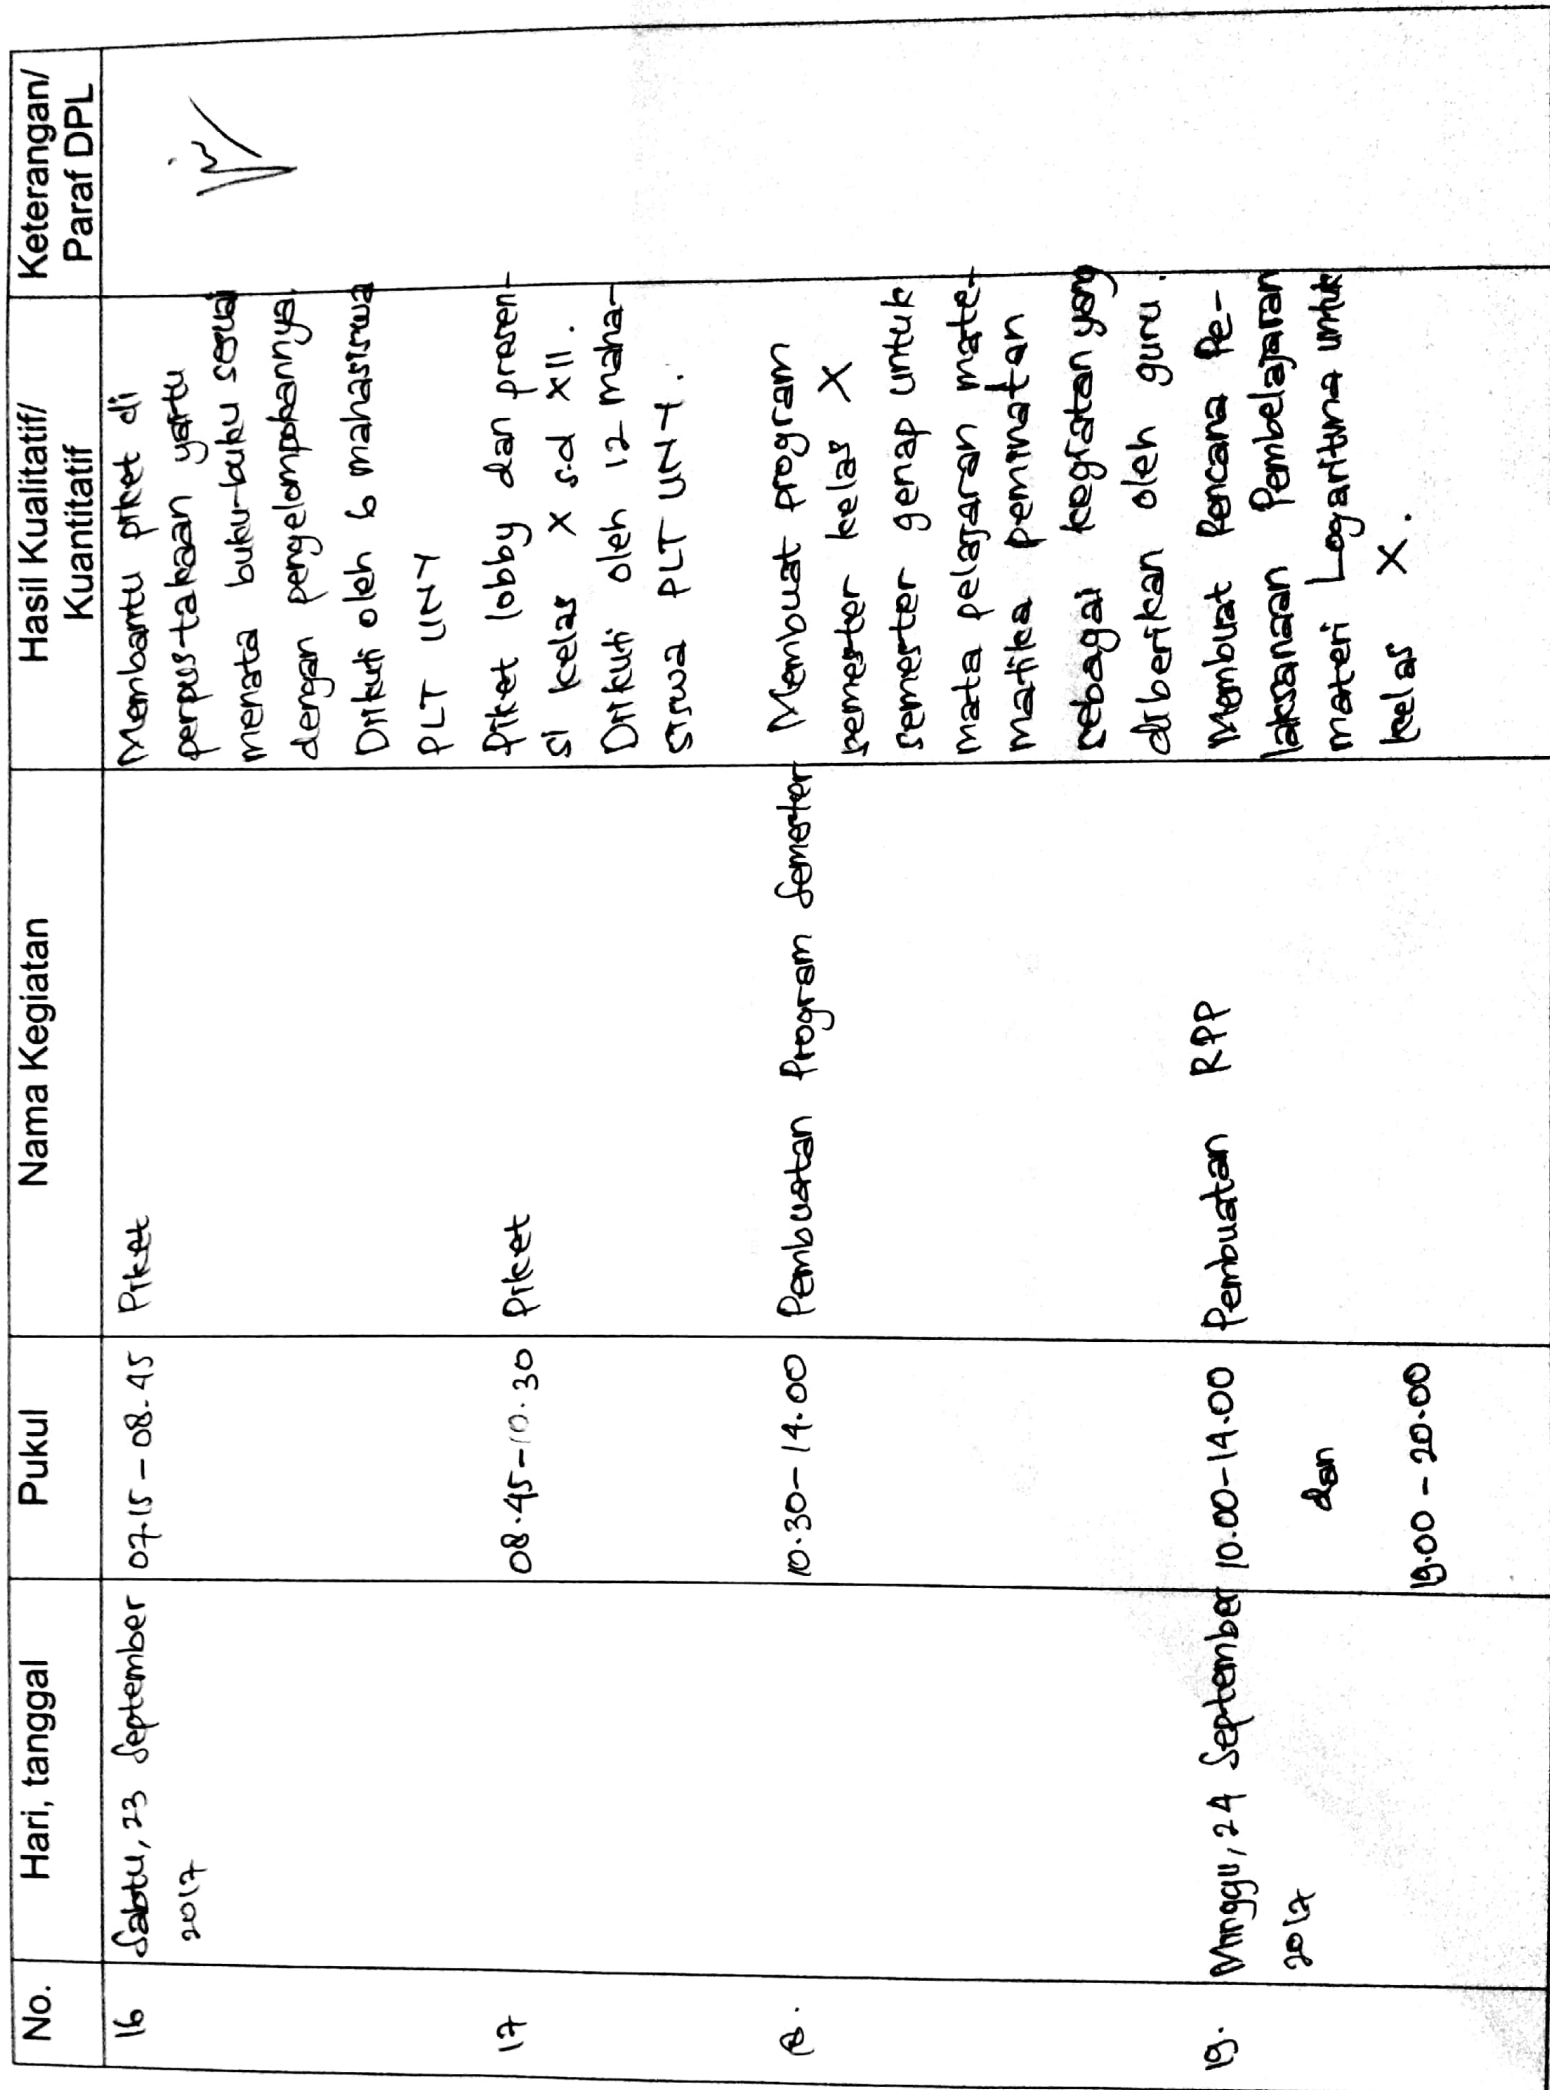 No. Hari, tanggal Pukul Nama Kegiatan Hasil Kualitatif/ Kuantitatif Keterangan/ Paraf DPL
16 Sabtu, 23 September 2017 07.15 - 08.45 Piket
Membantu piket di
perpustakaan yaitu
menata buku-buku sesuai
dengan pengelompokannya.
Diikuti oleh 6 mahasiswa
PLT UNY
17 08.45 - 10.30 Piket
Piket lobby dan presen-
si kelas X s.d XII.
Diikuti oleh 12 maha-
siswa PLT UNY.
18. 10.30 - 14.00 Pembuatan Program Semester
Membuat program
semester kelas X
semester genap untuk
mata pelajaran mate-
matika peminatan
sebagai kegiatan yang
diberikan oleh guru.
19. Minggu, 24 September 2017 10.00 - 14.00 dan 19.00 - 20.00 Pembuatan RPP
Membuat Rencana Pe-
laksanaan Pembelajaran
materi Logaritma untuk
kelas X.